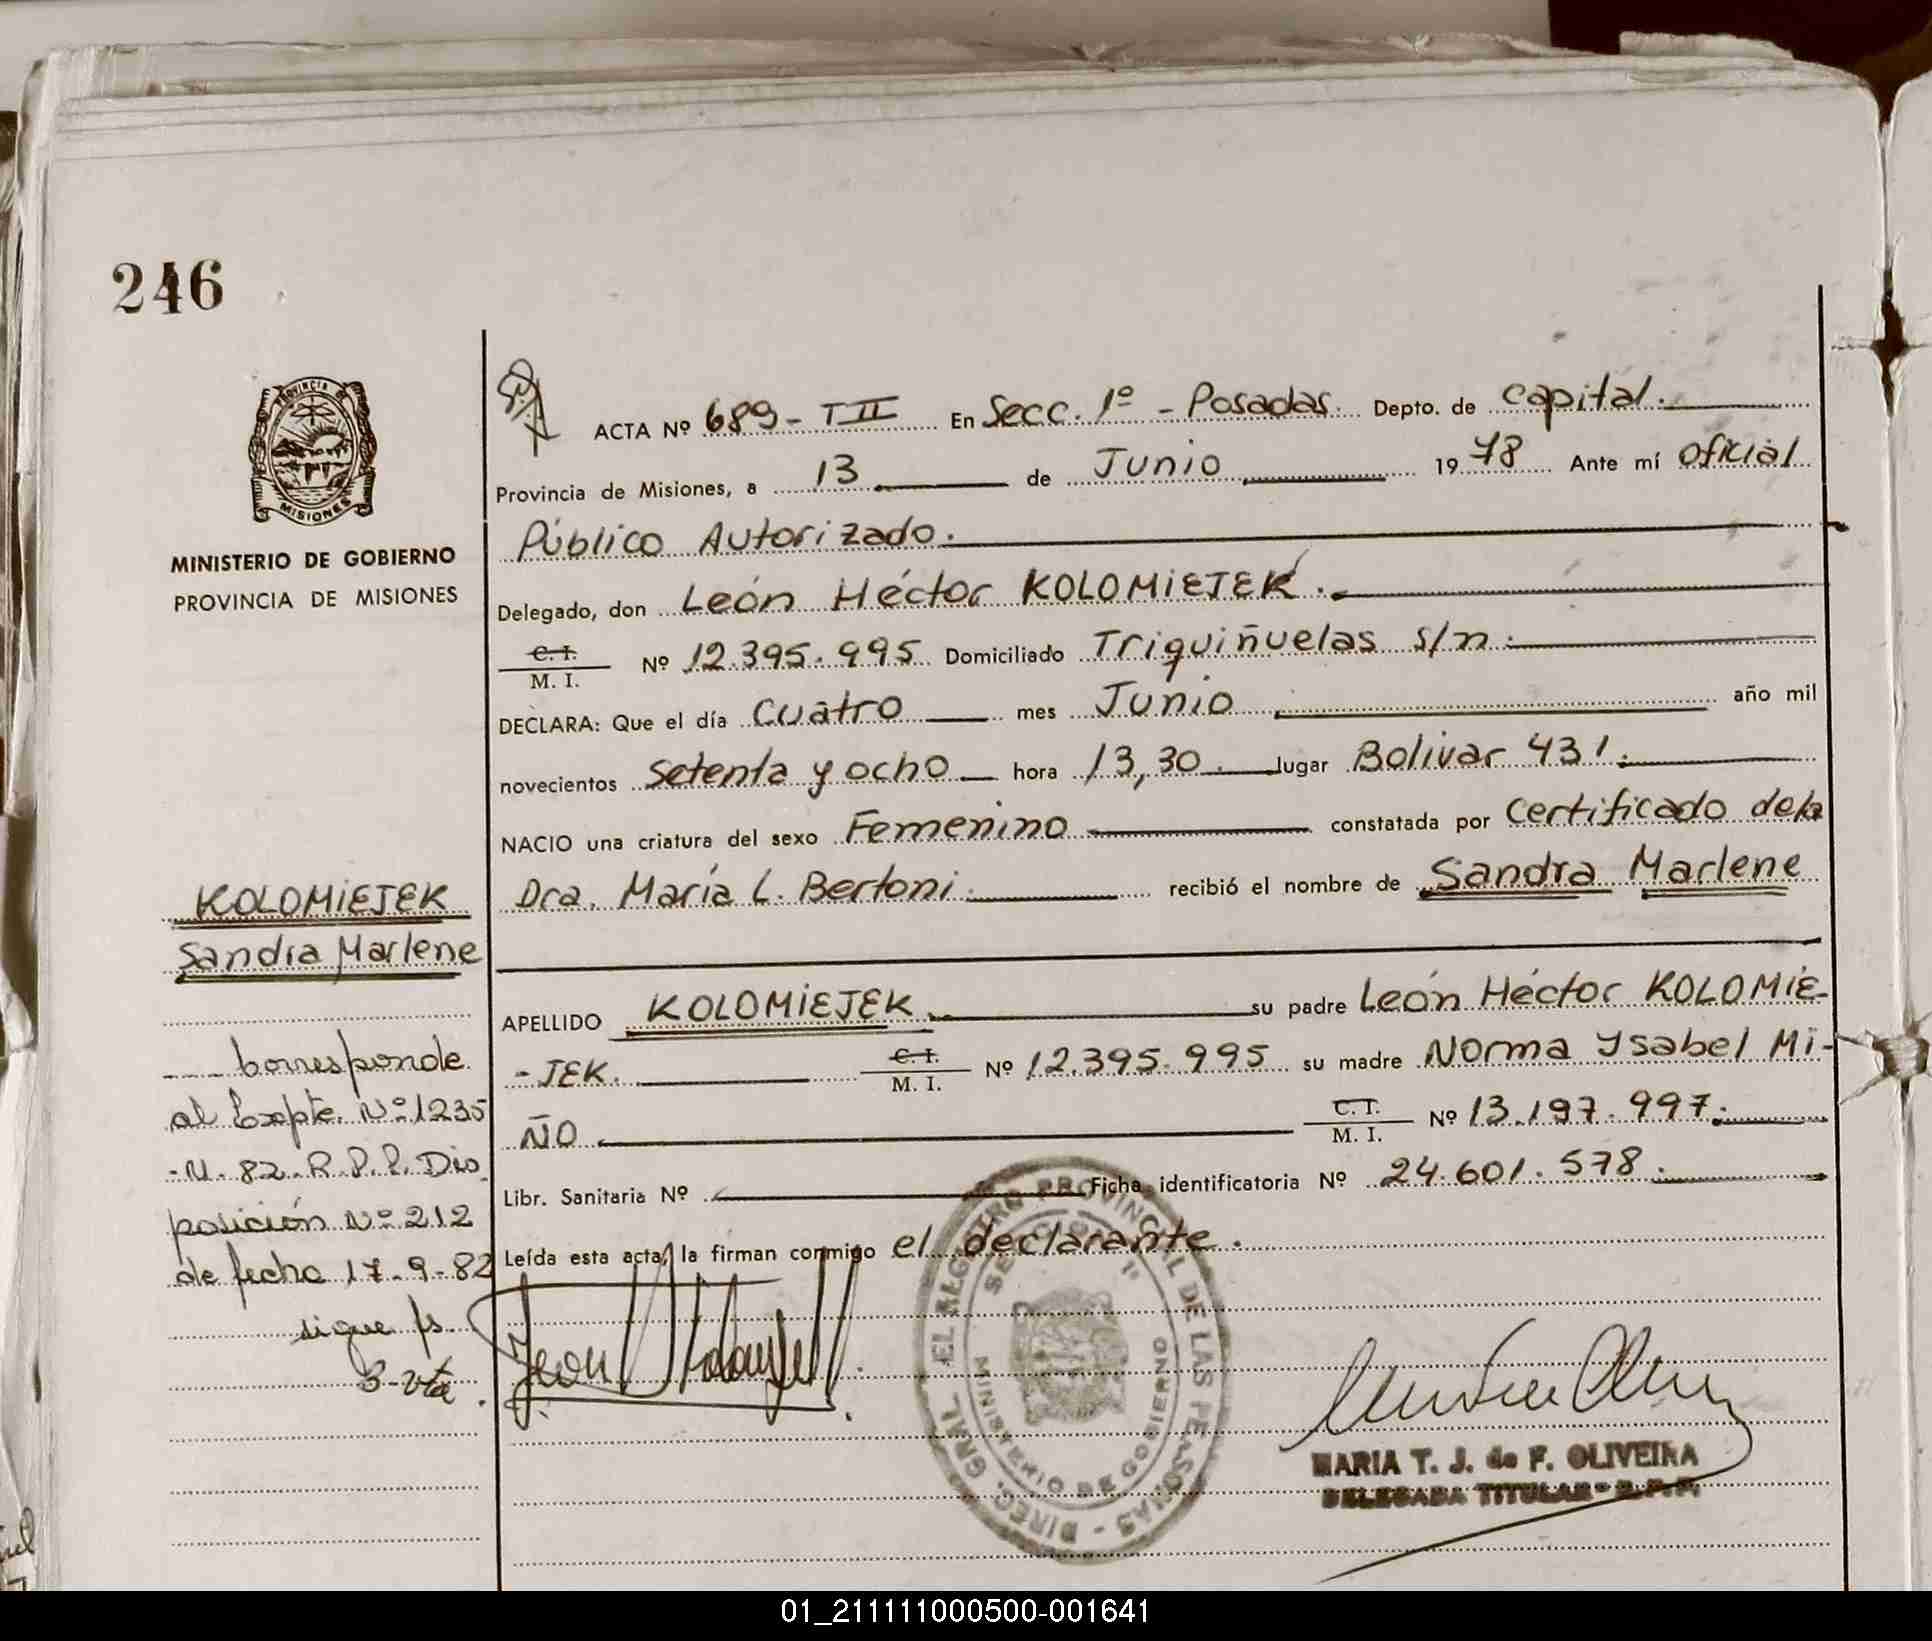 246
PROVINCIA DE
MISIONES
MINISTERIO DE GOBIERNO
PROVINCIA DE MISIONES
ACTA Nº 689 - T II En Secc. 1º - Posadas. Depto. de Capital.
Provincia de Misiones, a 13 de Junio 19 78 Ante mí Oficial
Público Autorizado.
Delegado, don León Héctor KOLOMIEJEK.
C. I.
M. I. Nº 12.395.995 Domiciliado Triquiñuelas s/n.
DECLARA: Que el día Cuatro mes Junio año mil
novecientos Setenta y ocho hora 13,30. lugar Bolivar 431.
NACIO una criatura del sexo Femenino constatada por Certificado de la
Dra. María L. Bertoni. recibió el nombre de Sandra Marlene
KOLOMIEJEK
Sandra Marlene
APELLIDO KOLOMIEJEK. su padre León Héctor KOLOMIE-
-JEK. C. I. M. I. Nº 12.395.995 su madre Norma Ysabel MI-
ÑO C. I. M. I. Nº 13.197.997.
Libr. Sanitaria Nº Ficha identificatoria Nº 24.601.578.
Leída esta acta, la firman conmigo el declarante.
Corresponde
al Expte. Nº 1235
-M-82-R.P.P. Dis
posición Nº 212
de fecha 17-9-82
sigue fs.
3-vta.
DIREC. GRAL. EL REGISTRO PROVINCIAL DE LAS PERSONAS
SECCION 1º
MINISTERIO DE GOBIERNO
MARIA T. J. de F. OLIVEIRA
DELEGADA TITULAR - R.P.P.
01_211111000500-001641